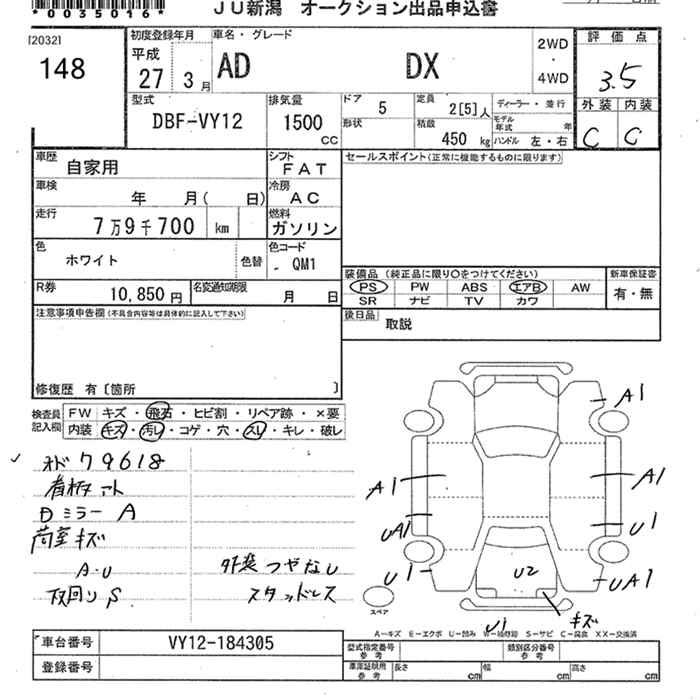 *0035016*
JU新潟 オークション出品申込書
[2032]
148
初度登録年月
平成
27 3月
車名・グレード
AD DX
2WD
・
4WD
評価点
3.5
外装 内装
C C
型式
DBF-VY12
排気量
1500
cc
ドア
5
形状
定員
2[5]人
積載
450 kg
ディーラー・並行
モデル年式 年
ハンドル 左・右
車歴
自家用
シフト
FAT
セールスポイント(正常に機能するものに限ります)
車検
年 月( 日)
冷房
AC
走行
7万9千700 km
燃料
ガソリン
色
ホワイト
色替
色コード
QM1
R券
10,850円
名変通知期限
月 日
装備品 (純正品に限り○をつけてください)
PS PW ABS エアB AW
SR ナビ TV カワ
新車保証書
有・無
後日品
取説
注意事項申告欄(不具合内容等は具体的に記入して下さい)
修復歴 有〔箇所 〕
検査員記入欄
FW キズ・飛石・ヒビ割・リペア跡・×要
内装 キズ・汚レ・コゲ・穴・スレ・キレ・破レ
オド 79618
看板アト
Dミラー A
荷室キズ
A・U
下回り S
外装つやなし
スタッドレス
A1
A1
A1
UA1
U1
U1
U2
UA1
U1
キズ
スペア
A-キズ E-エクボ U-凹み W-補修跡 S-サビ C-腐食 XX-交換済
車台番号
VY12-184305
登録番号
型式指定番号
参考
類別区分番号
参考
車庫証明用
参考
長さ cm
幅 cm
高さ cm